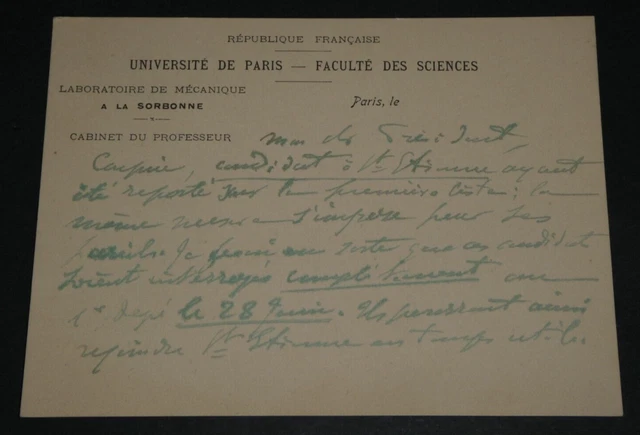 RÉPUBLIQUE FRANÇAISE
UNIVERSITÉ DE PARIS — FACULTÉ DES SCIENCES
LABORATOIRE DE MÉCANIQUE
A LA SORBONNE
Paris, le
CABINET DU PROFESSEUR
Président,
candidat à St Etienne ayant
été reporté sur la première liste; la
même mesure s'impose pour ses
pareils. Je ferai en sorte que ces candidats
soient interrogés complètement au
1er degré le 28 Juin. Ils pourront ainsi
rejoindre St Etienne en temps utile.